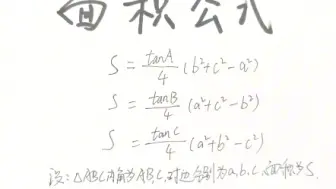 面积公式
S = tanA/4 (b²+c²-a²)
S = tanB/4 (a²+c²-b²)
S = tanC/4 (a²+b²-c²)
设:△ABC内角为A B C,对边分别为a,b,c,面积为S.